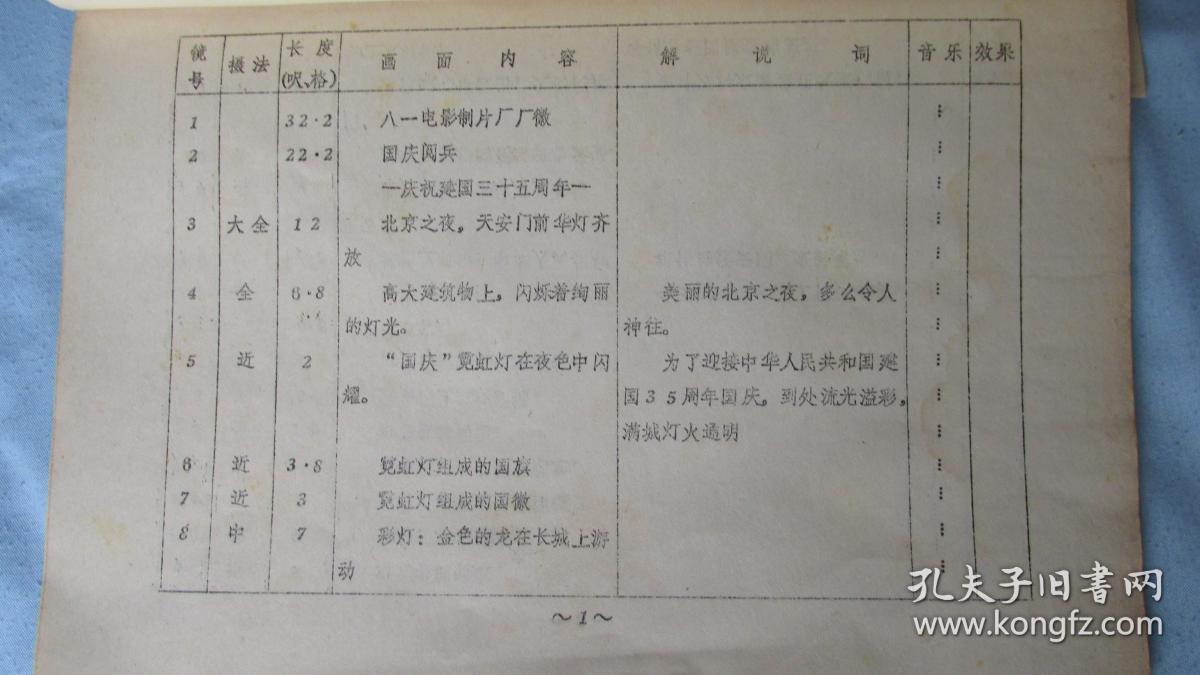 镜号 摄法 长度(呎、格) 画面内容 解说词 音乐 效果
1 32·2 八一电影制片厂厂徽
2 22·2 国庆阅兵
—庆祝建国三十五周年—
3 大全 12 北京之夜，天安门前华灯齐
放
4 全 6·8 高大建筑物上，闪烁着绚丽 美丽的北京之夜，多么令人
的灯光。 神往。
5 近 2 “国庆”霓虹灯在夜色中闪 为了迎接中华人民共和国建
耀。 国35周年国庆，到处流光溢彩，
满城灯火通明
6 近 3·8 霓虹灯组成的国旗
7 近 3 霓虹灯组成的国徽
8 中 7 彩灯：金色的龙在长城上游
动
～1～
孔夫子旧书网
www.kongfz.com